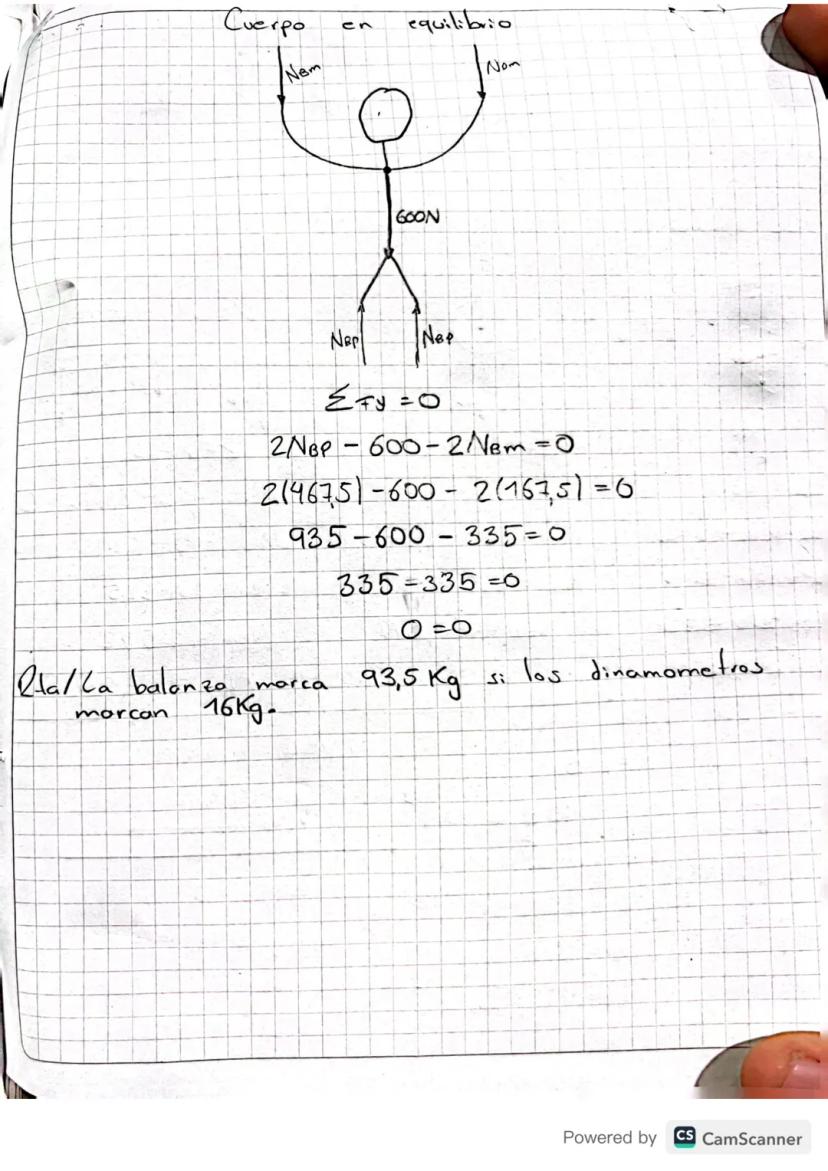 Cuerpo en equilibrio
NBm
NBm
600N
NBP
NBP
ΣFy = 0
2NBP - 600 - 2NBm = 0
2(467,5) - 600 - 2(167,5) = 0
935 - 600 - 335 = 0
335 - 335 = 0
0 = 0
Rta/ La balanza marca 93,5 Kg si los dinamometros
marcan 16Kg.
Powered by CS CamScanner